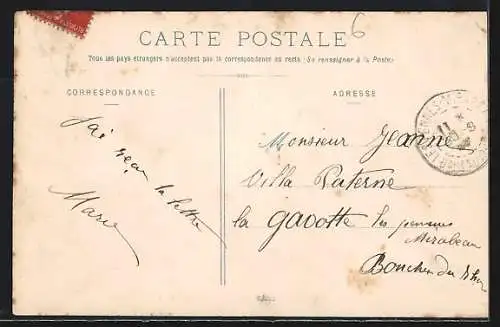 6
CARTE POSTALE
Tous les pays étrangers n'acceptent pas la correspondance au recto (Se renseigner à la Poste)
CORRESPONDANCE
ADRESSE
J'ai reçu ta lettre
Marie
Monsieur Jeanne
Villa Paterne
la Gavotte les pennes
Mirabeau
Bouches du Rhone